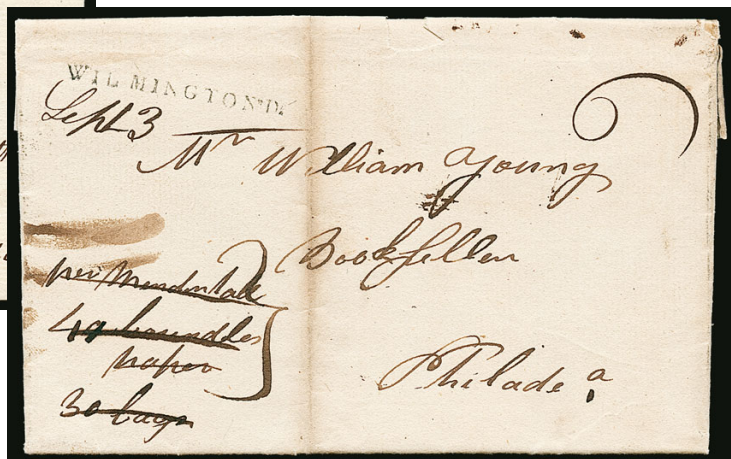 WILMINGTON*D*
Sept 3
Mr William Young
Bookseller
Philadea
per Mendenhall
49 bounddles
paper
30 bags